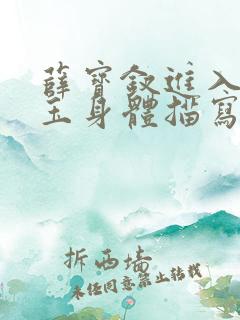 薛寶釵進入
玉身體描寫
拆西墻
未经同意禁止转载